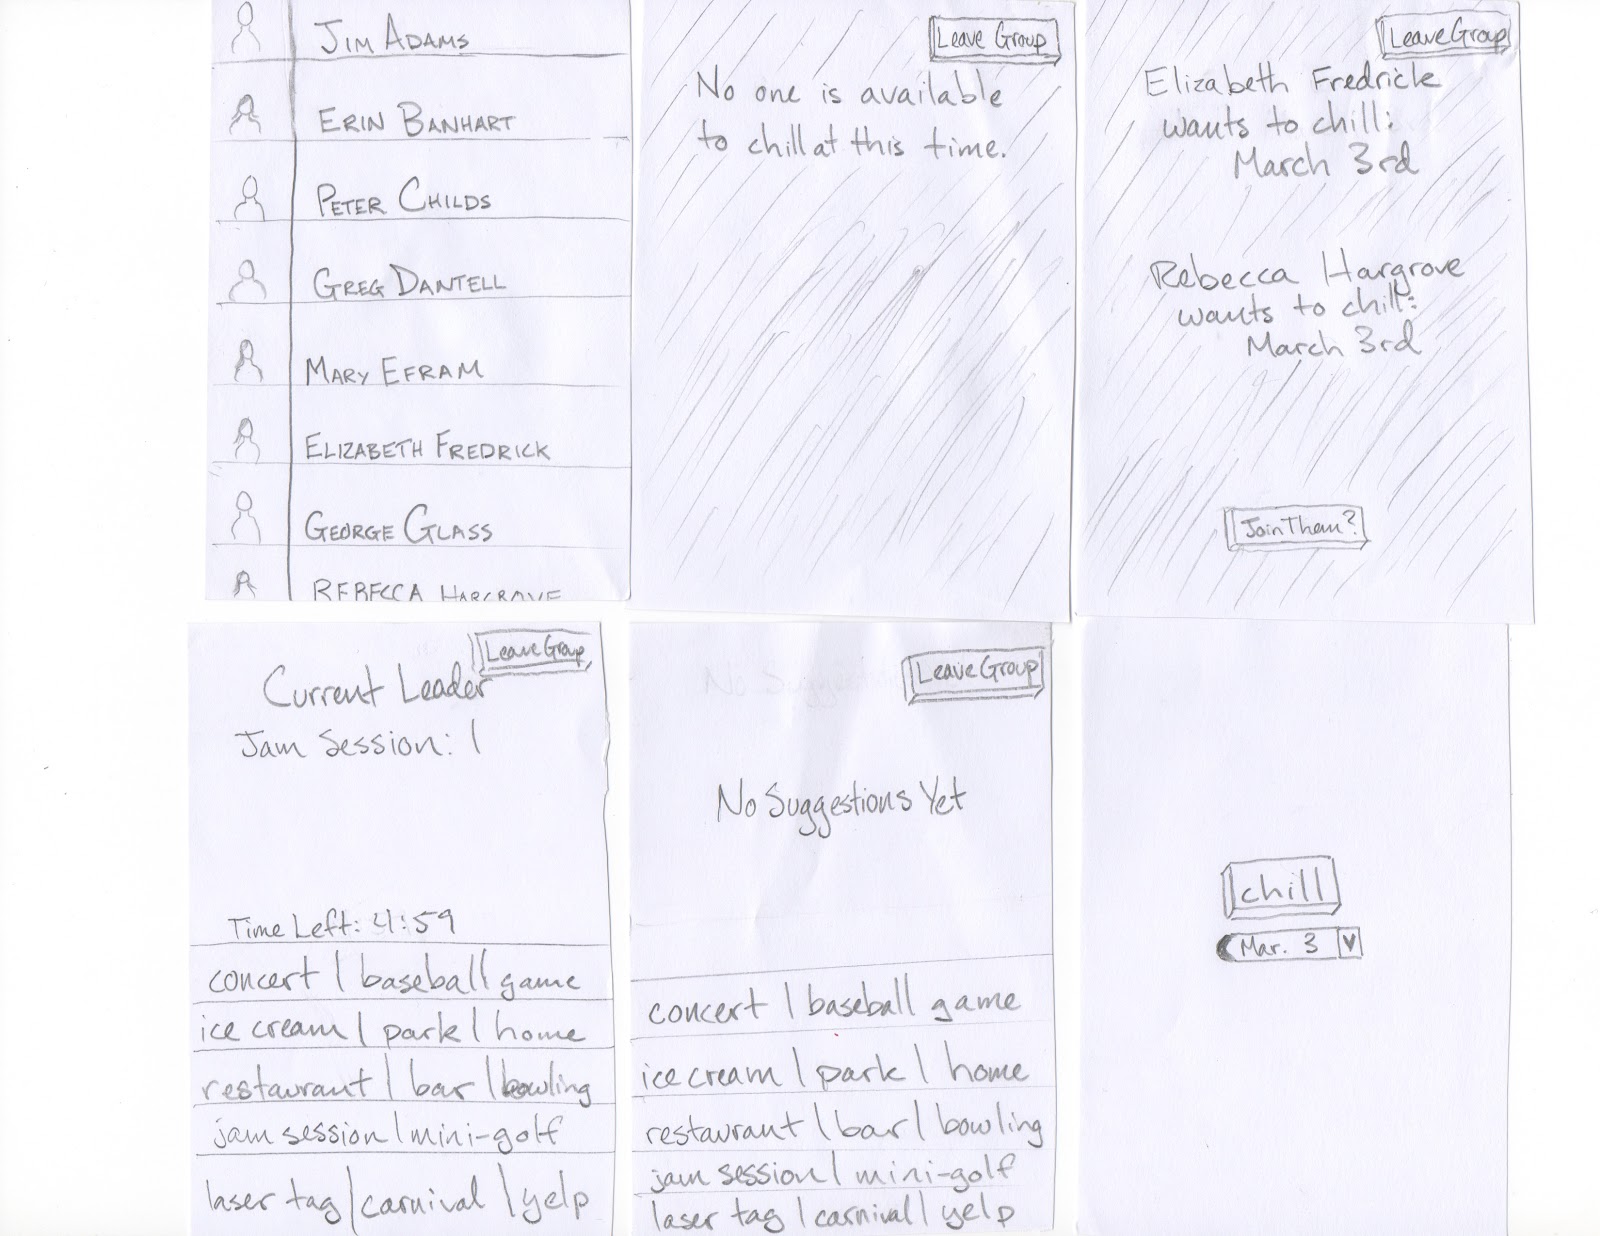 Jim Adams
Erin Banhart
Peter Childs
Greg Dantell
Mary Efram
Elizabeth Fredrick
George Glass
Rebecca Hargrove
Leave Group
No one is available
to chill at this time.
Leave Group
Elizabeth Fredrick
wants to chill:
March 3rd
Rebecca Hargrove
wants to chill:
March 3rd
Join Them?
Leave Group
Current Leader
Jam Session: 1
Time Left: 4:59
concert | baseball game
ice cream | park | home
restaurant | bar | bowling
jam session | mini-golf
laser tag | carnival | yelp
Leave Group
No Suggestions Yet
concert | baseball game
ice cream | park | home
restaurant | bar | bowling
jam session | mini-golf
laser tag | carnival | yelp
chill
Mar. 3 V